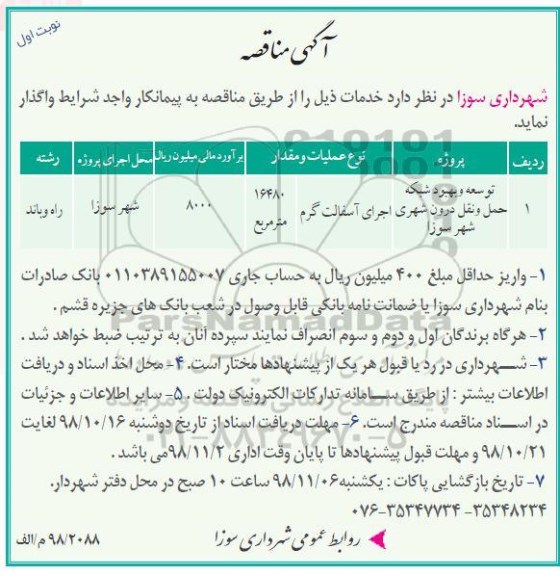 نوبت اول
آگهی مناقصه
شهرداری سوزا در نظر دارد خدمات ذیل را از طریق مناقصه به پیمانکار واجد شرایط واگذار
نماید.
ردیف پروژه نوع عملیات و مقدار برآورد مالی میلیون ریال محل اجرای پروژه رشته
۱ توسعه و بهبود شبکه حمل و نقل درون شهری شهر سوزا اجرای آسفالت گرم ۱۶۴۸۰ مترمربع ۸۰۰۰ شهر سوزا راه و باند
۱- واریز حداقل مبلغ ۴۰۰ میلیون ریال به حساب جاری ۰۱۱۰۳۸۹۱۵۵۰۰۷ بانک صادرات
بنام شهرداری سوزا یا ضمانت نامه بانکی قابل وصول در شعب بانک های جزیره قشم .
۲- هرگاه برندگان اول و دوم و سوم انصراف نمایند سپرده آنان به ترتیب ضبط خواهد شد .
۳- شهرداری در رد یا قبول هر یک از پیشنهادها مختار است. ۴- محل اخذ اسناد و دریافت
اطلاعات بیشتر : از طریق سامانه تدارکات الکترونیک دولت . ۵- سایر اطلاعات و جزئیات
در اسناد مناقصه مندرج است. ۶- مهلت دریافت اسناد از تاریخ دوشنبه ۹۸/۱۰/۱۶ لغایت
۹۸/۱۰/۲۱ و مهلت قبول پیشنهادها تا پایان وقت اداری ۹۸/۱۱/۲ می باشد .
۷- تاریخ بازگشایی پاکات : یکشنبه ۹۸/۱۱/۰۶ ساعت ۱۰ صبح در محل دفتر شهردار.
۰۷۶-۳۵۳۴۷۷۳۴ -۳۵۳۴۸۲۳۴
روابط عمومی شهرداری سوزا
۹۸/۲۰۸۸ م/الف
ParsNamadData
۰۲۱-۸۸۳۴۹۶۷۰-۵